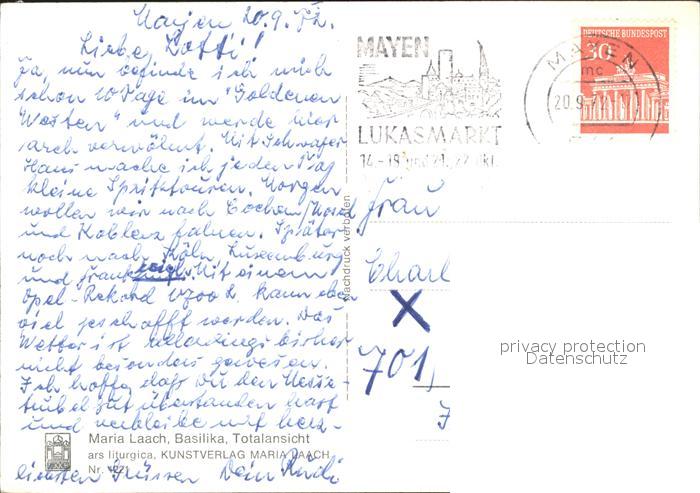 Mayen 20.9.72.
Liebe Lotti!
Ja, nun befinde ich mich
schon 10 Tage im "Goldenen
Westen" und werde hier
arch verwöhnt. Mit Schwager
Hans mache ich jeden Tag
kleine Spritztouren. Morgen
wollen wir nach Cochem/Mosel
und Koblenz fahren. Später
noch nach Köln, Luxemburg
und Frankreich. Mit einem
Opel-Rekord 1700 L kann eben
viel geschafft werden. Das
Wetter ist allerdings bisher
nicht besonders gewesen.
Ich hoffe, daß Du den Messe-
trubel gut überstanden hast
und verbleibe mit herz-
lichsten Grüssen Dein Rudi
Maria Laach, Basilika, Totalansicht
ars liturgica, KUNSTVERLAG MARIA LAACH
Nr.
Nachdruck verboten
MAYEN
LUKASMARKT
DEUTSCHE BUNDESPOST
30
MAYEN
mc
20.9.72
Frau
Charl
X
701
privacy protection
Datenschutz